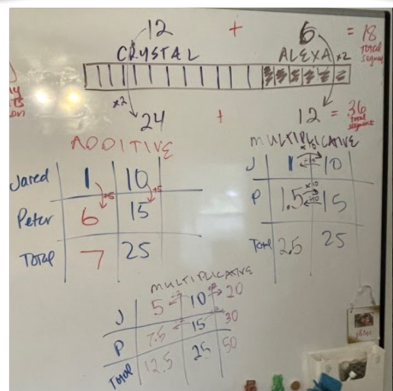 12 + 6 = 18
Total
CRYSTAL ALEXA x2
x2
24 + 12 = 36
Total
ADDITIVE
Jared 1 10
+5 +5
Peter 6 15
Total 7 25
MULTIPLICATIVE
J 1 10
P 1.5 15
Total 2.5 25
MULTIPLICATIVE
J 5 10 20
P 7.5 15 30
Total 12.5 25 50